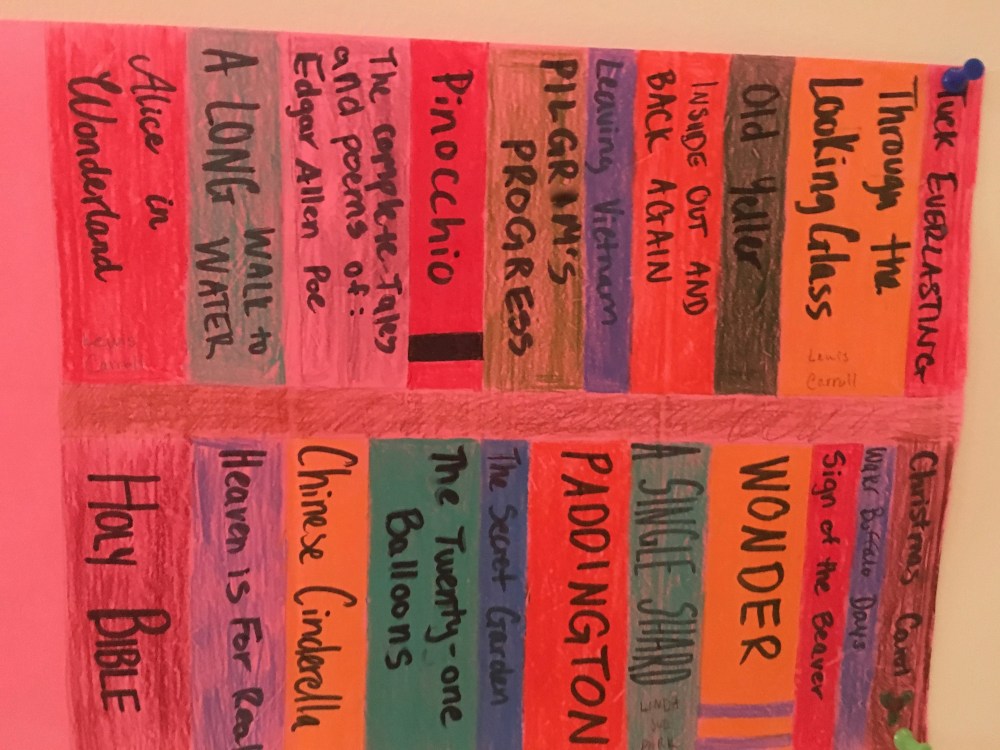 TUCK EVERLASTING
Through the
Looking Glass
Lewis
Carroll
Old Yeller
INSIDE OUT AND
BACK AGAIN
Leaving Vietnam
PILGRIM'S
PROGRESS
Pinocchio
The complete Tales
and poems of:
Edgar Allen Poe
A LONG WALK to
WATER
Alice in
Wonderland
Lewis
Carroll
Christmas Carol
Water Buffalo Days
Sign of the Beaver
WONDER
A SINGLE SHARD
LINDA
SUE
PARK
PADDINGTON
The Secret Garden
The Twenty-one
Balloons
Chinese Cinderella
Heaven is For Real
HOLY BIBLE